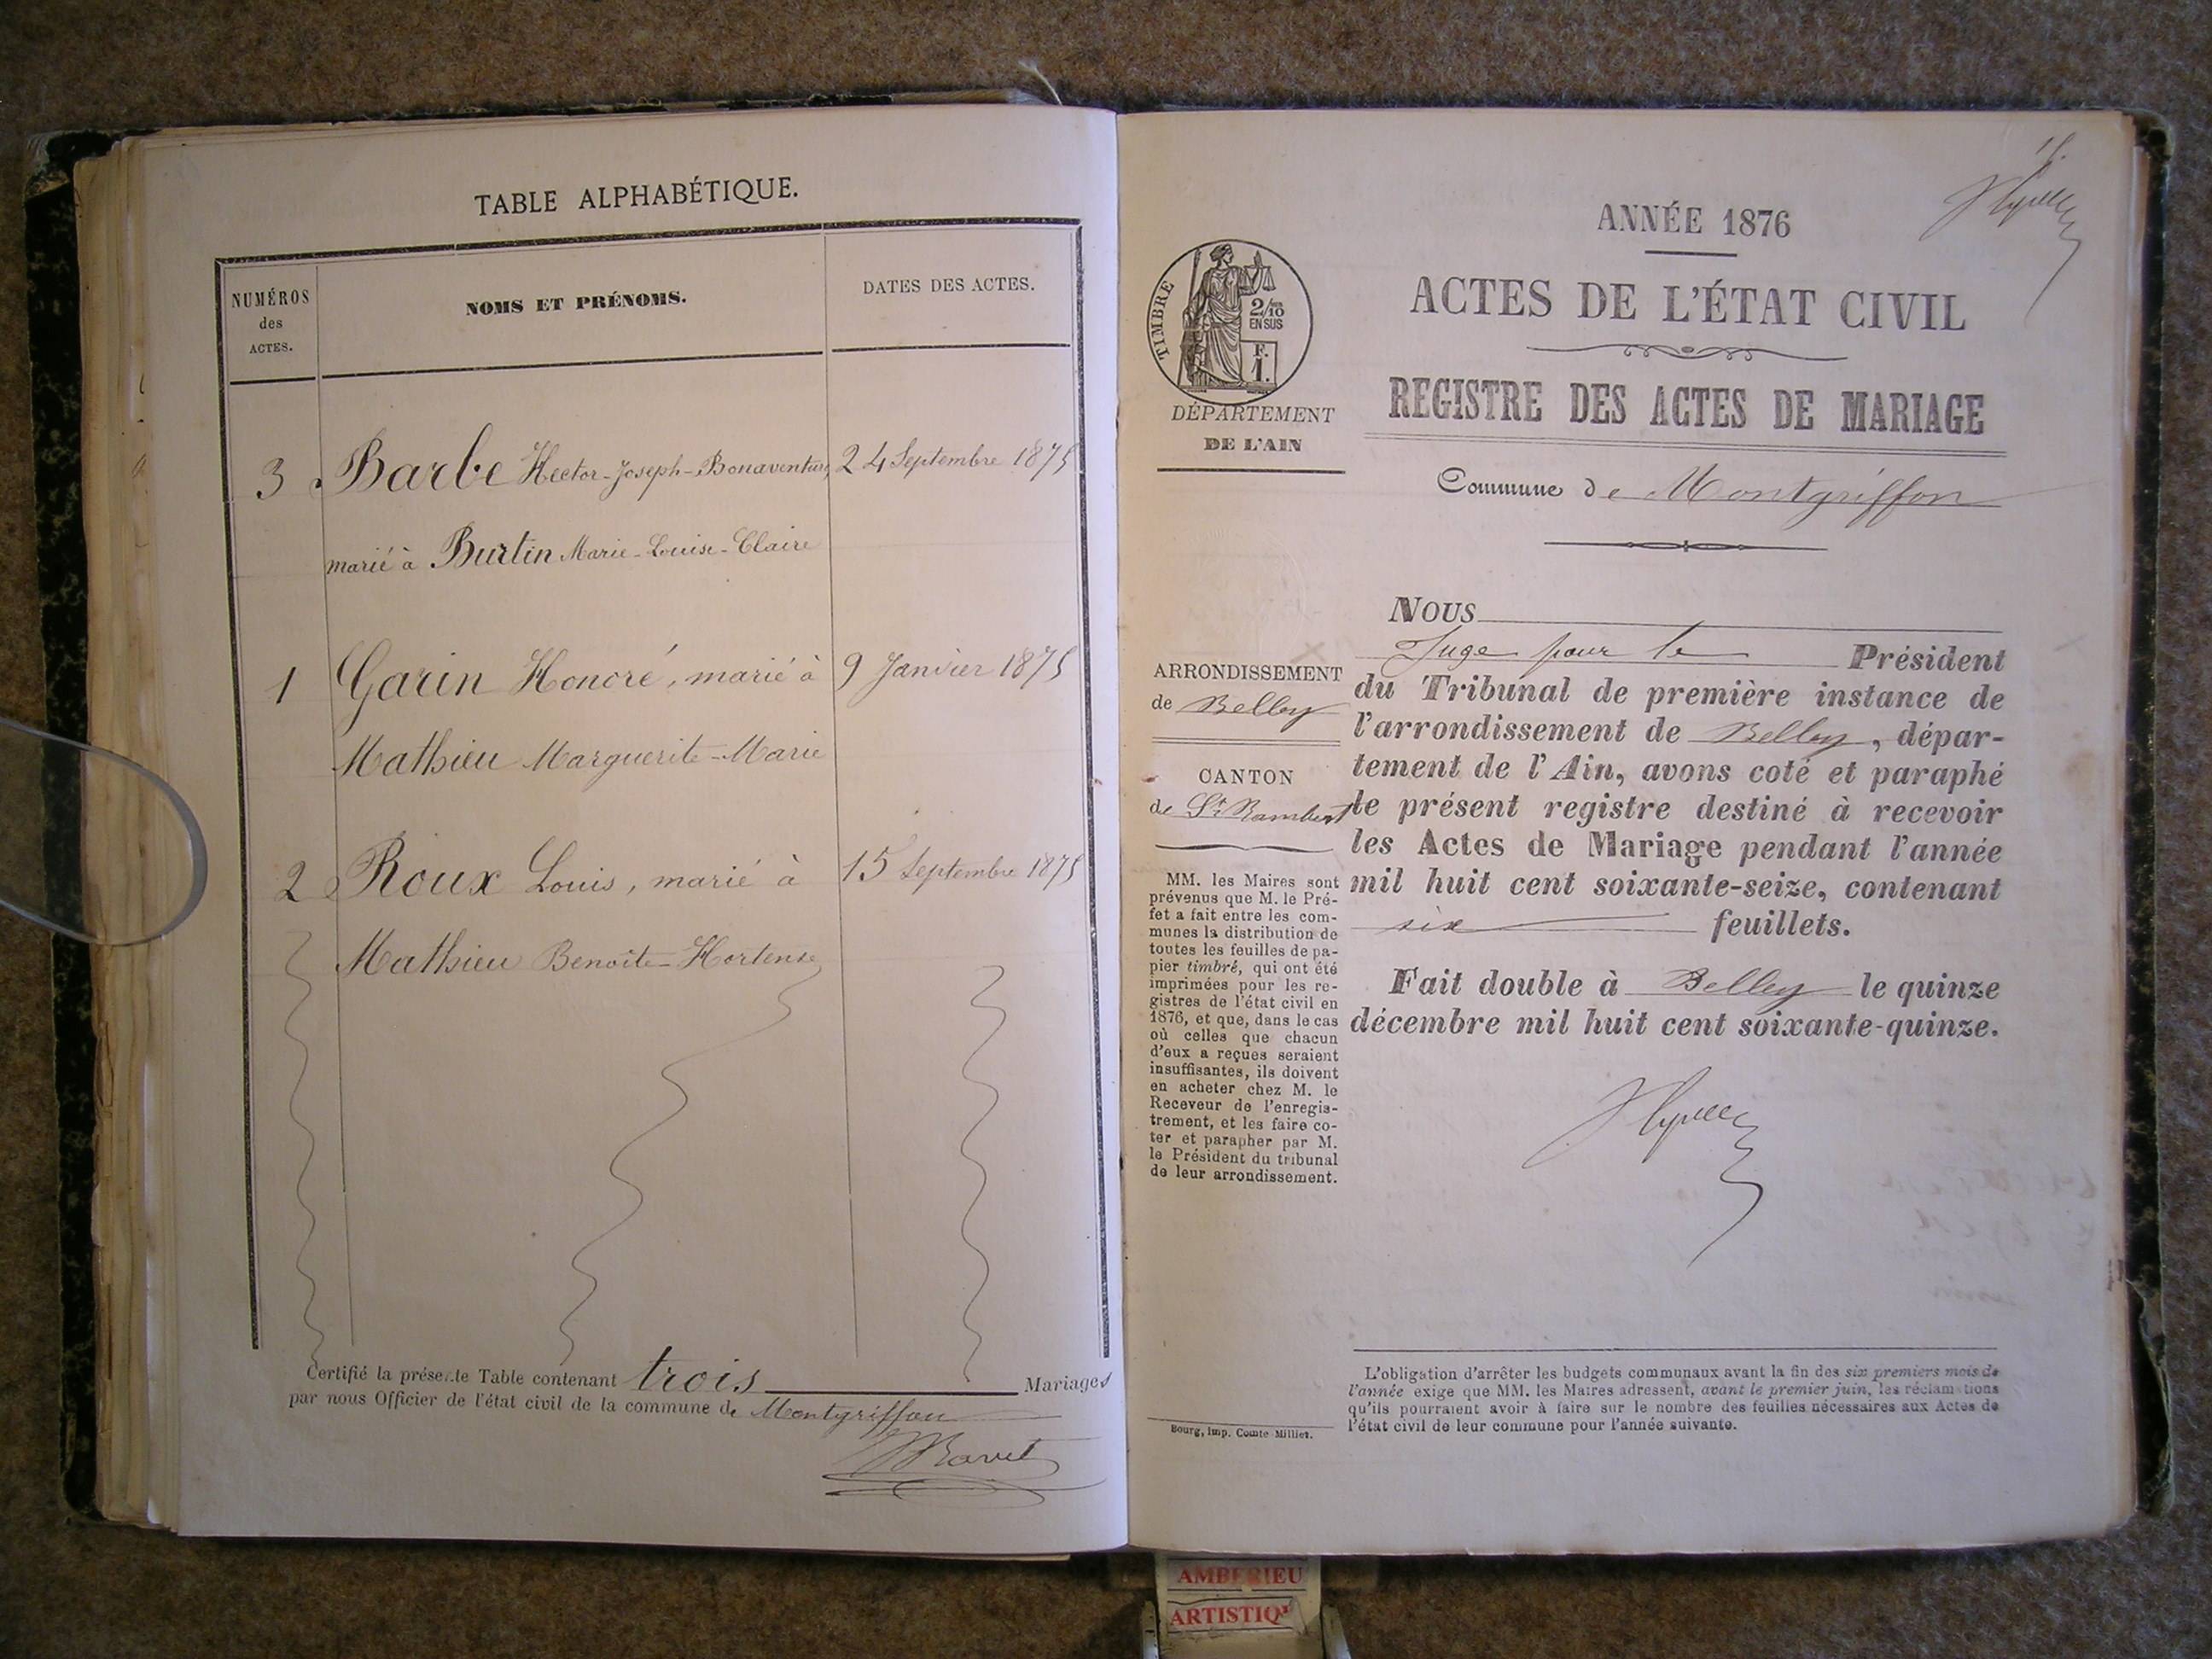 TABLE ALPHABÉTIQUE.
NUMÉROS
des
ACTES.
NOMS ET PRÉNOMS.
DATES DES ACTES.
3 Barbe Hector-Joseph-Bonaventure, 24 Septembre 1875
marié à Burtin Marie-Louise-Claire
1 Garin Honoré, marié à 9 Janvier 1875
Mathieu Marguerite-Marie
2 Roux Louis, marié à 15 Septembre 1875
Mathieu Benoîte-Hortense
Certifié la présente Table contenant trois Mariages
par nous Officier de l'état civil de la commune de Montgriffon
Ravet
ANNÉE 1876
ACTES DE L'ÉTAT CIVIL
REGISTRE DES ACTES DE MARIAGE
Commune de Montgriffon
TIMBRE
2/10
EN SUS
F.
1.
DÉPARTEMENT
DE L'AIN
ARRONDISSEMENT
de Belley
CANTON
de St Rambert
MM. les Maires sont
prévenus que M. le Pré-
fet a fait entre les com-
munes la distribution de
toutes les feuilles de pa-
pier timbré, qui ont été
imprimées pour les re-
gistres de l'état civil en
1876, et que, dans le cas
où celles que chacun
d'eux a reçues seraient
insuffisantes, ils doivent
en acheter chez M. le
Receveur de l'enregis-
trement, et les faire co-
ter et parapher par M.
le Président du tribunal
de leur arrondissement.
Bourg, Imp. Comte-Milliet.
NOUS
Juge pour le Président
du Tribunal de première instance de
l'arrondissement de Belley, dépar-
tement de l'Ain, avons coté et paraphé
le présent registre destiné à recevoir
les Actes de Mariage pendant l'année
mil huit cent soixante-seize, contenant
six feuillets.
Fait double à Belley le quinze
décembre mil huit cent soixante-quinze.
L'obligation d'arrêter les budgets communaux avant la fin des six premiers mois de
l'année exige que MM. les Maires adressent, avant le premier juin, les réclamations
qu'ils pourraient avoir à faire sur le nombre des feuilles nécessaires aux Actes de
l'état civil de leur commune pour l'année suivante.
AMBERIEU
ARTISTIQ